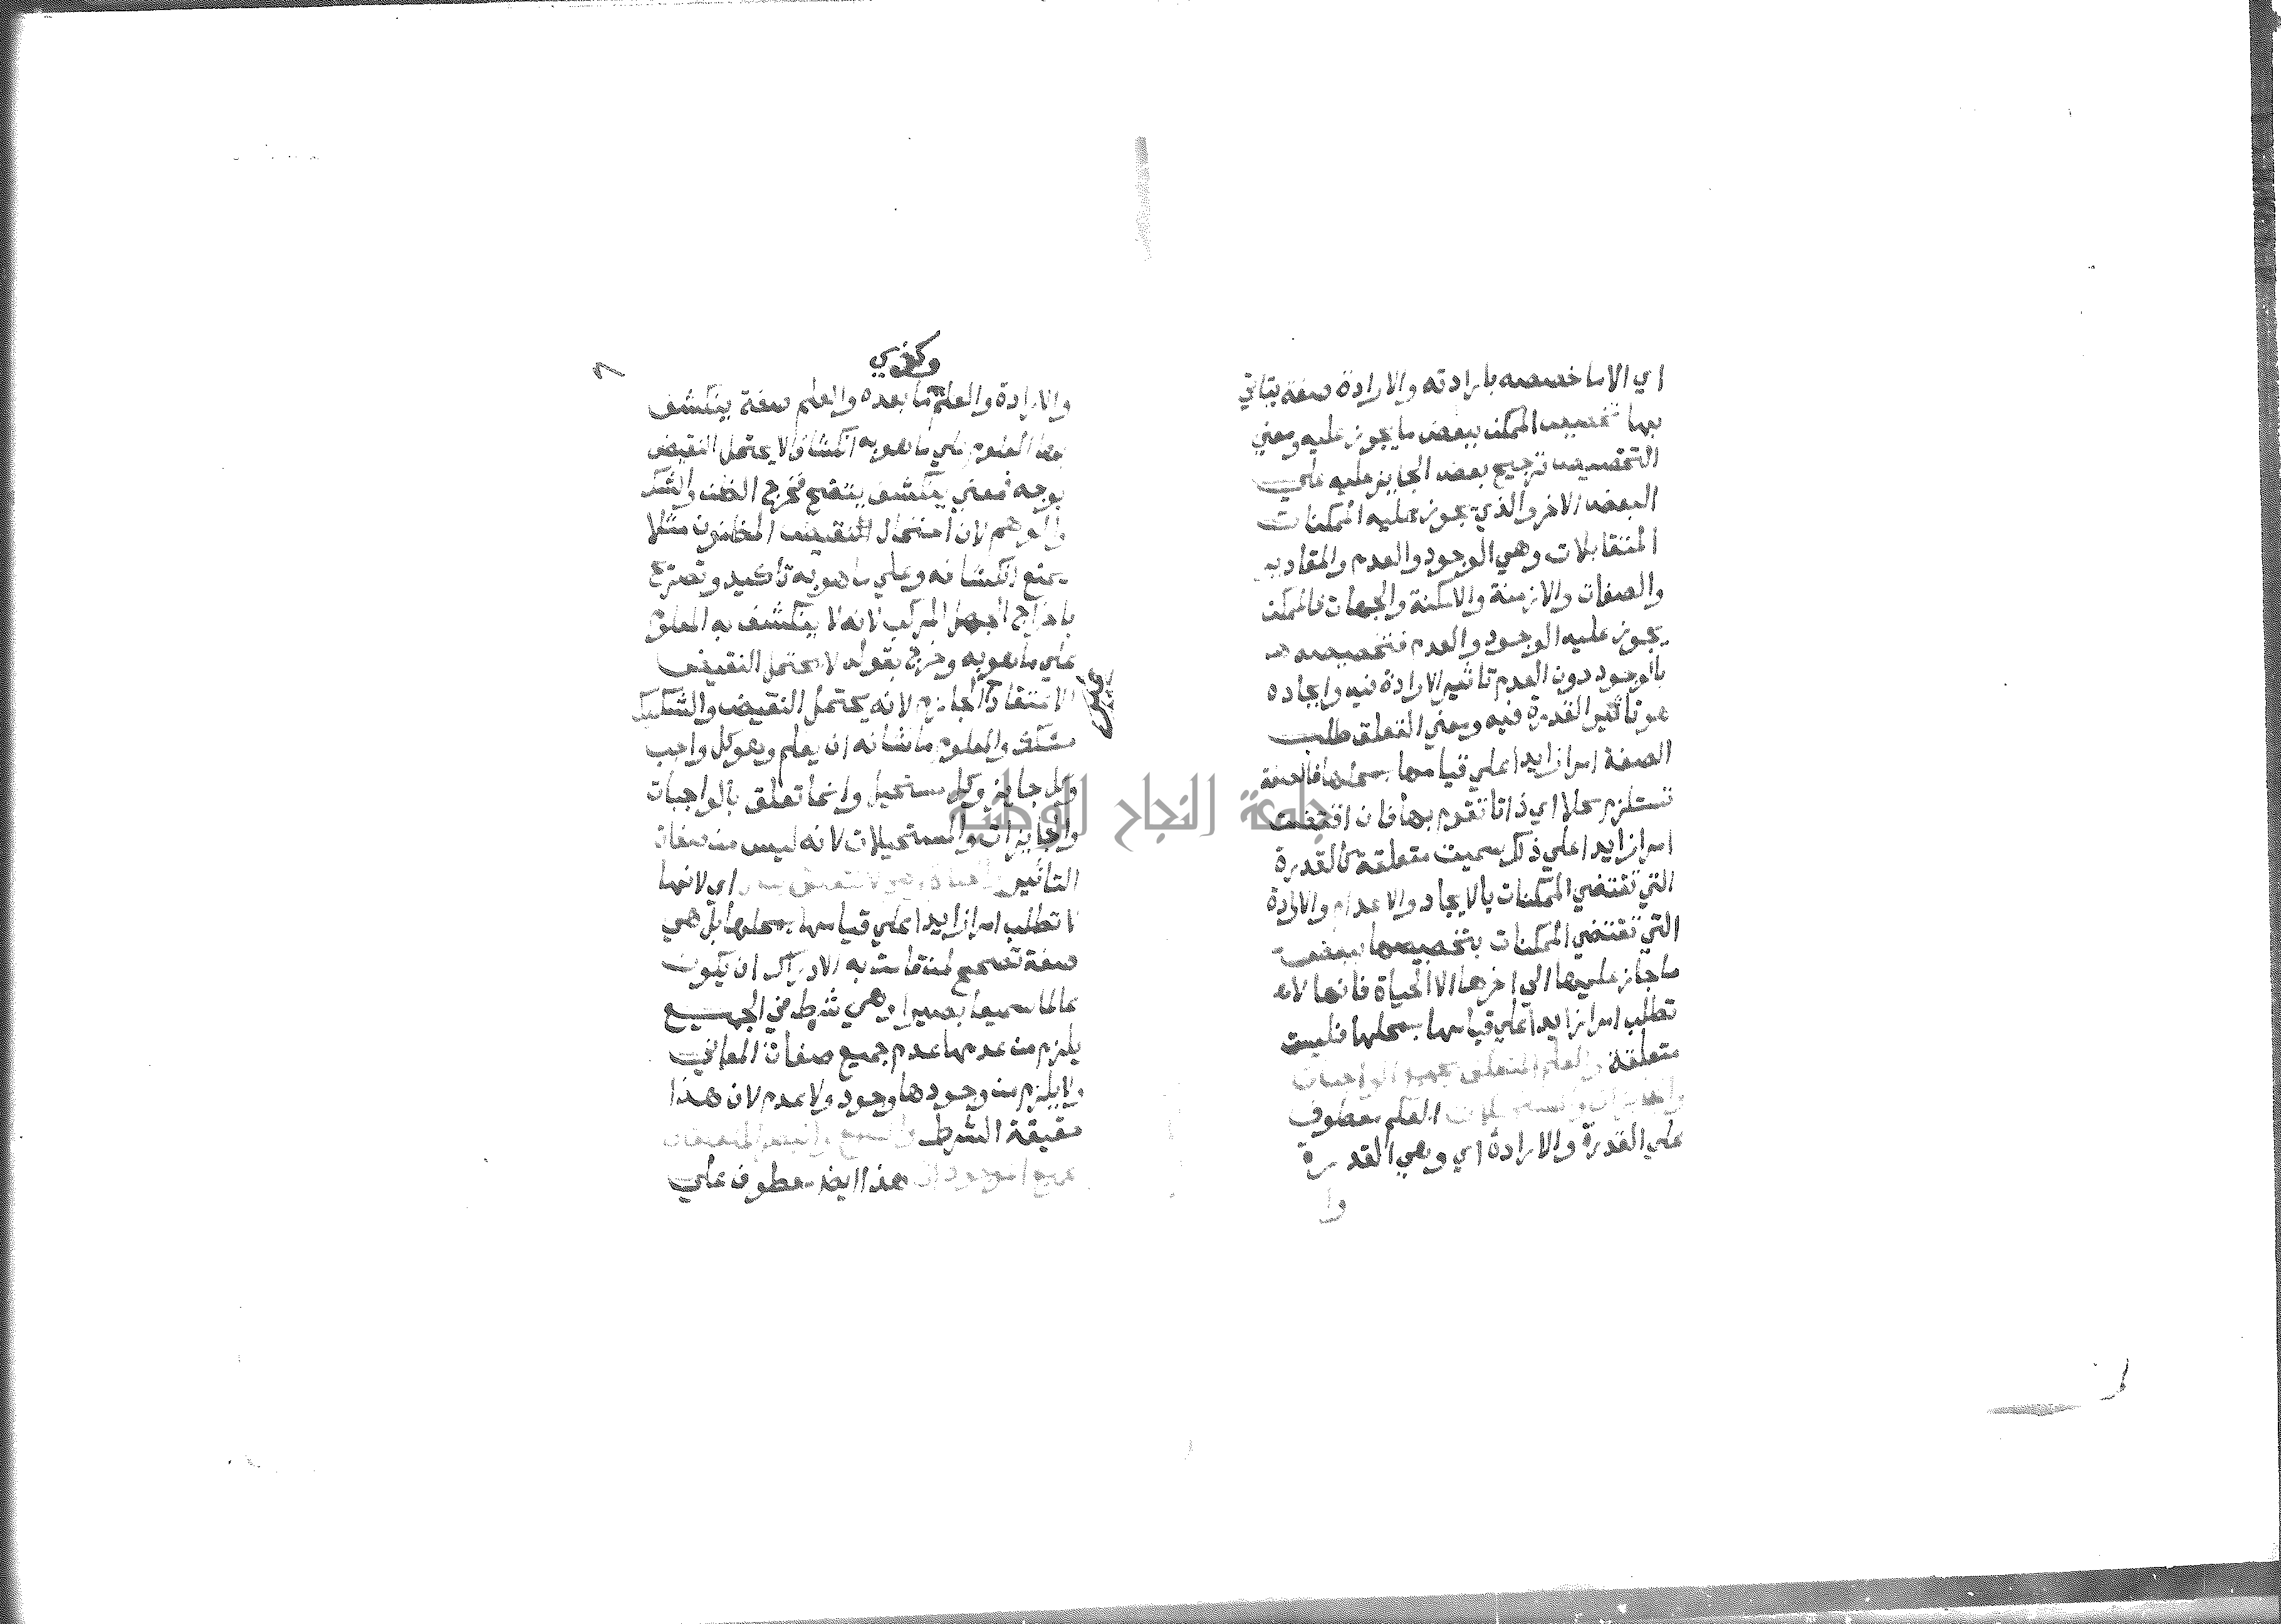 اي الا ما خصصه بارادته والارادة صفة يتاتي
بها تخصيص الممكن ببعض ما يجوز عليه ومعني
التخصيص ترجيح بعض الجايز عليه علي
البعض الاخر والذي يجوز عليه الممكنات
المتقابلات وهي الوجود والعدم والمقادير
والصفات والازمنة والامكنة والجهات فالممكن
يجوز عليه الوجود والعدم فتخصيصه
بالوجود دون العدم تاثير الارادة فيه وايجاده
هو تاثير القدرة فيه ومعني التعلق طلب
الصفة امرا زايدا علي قيامها بمحلها فالصفة
تستلزم محلا اي ذاتا تقوم بها فان اقتضت
امرا زايدا علي ذلك سميت متعلقة كالقدرة
التي تقتضي الممكنات بالايجاد والاعدام والارادة
التي تقتضي الممكنات بتخصيصها ببعض
ما جاز عليها الي اخرها الا الحياة فانها لا
تطلب امرا زايدا علي قيامها بمحلها فليست
متعلقة والعلم المتعلق بجميع الواجبات
والجايزات والمستحيلات العلم معطوف
علي القدرة والارادة اي وهي القدرة
وا
والارادة والعلم وكذي ما بعده والعلم صفة ينكشف
بها المعلوم علي ما هو به انكشافا لا يحتمل النقيض
بوجه فمعني ينكشف يتضح فخرج الظن والشك
والوهم لان احتمال النقيض المظنون مثلا
يمنع انكشافه وعلي ما هو به تاكيد وتصريح
باخراج الجهل المركب لانه لا ينكشف به المعلوم
علي ما هو به وخرج بقوله لا يحتمل النقيض
الاعتقاد الجازم لانه يحتمل النقيض والتشكيك
مشكك والمعلوم ما شانه ان يعلم وهو كل واجب
وكل جايز وكل مستحيل وانما تعلق بالواجبات
والجايزات والمستحيلات لانه ليس من صفات
التاثير والحياة وهي لا تتعلق بشي اي لانها
لا تطلب امرا زايدا علي قيامها بمحلها بل هي
صفة تصحح لمن قامت به الادراك ان يكون
عالما سميعا بصيرا وهي شرط في الجميع
يلزم من عدمها عدم جميع صفات المعاني
ولا يلزم من وجودها وجود ولا عدم لان هذا
حقيقة الشرط والسمع والبصر المتعلقان
بجميع الموجودات هذا ايضا معطوف علي
جامعة النجاح الوطنية